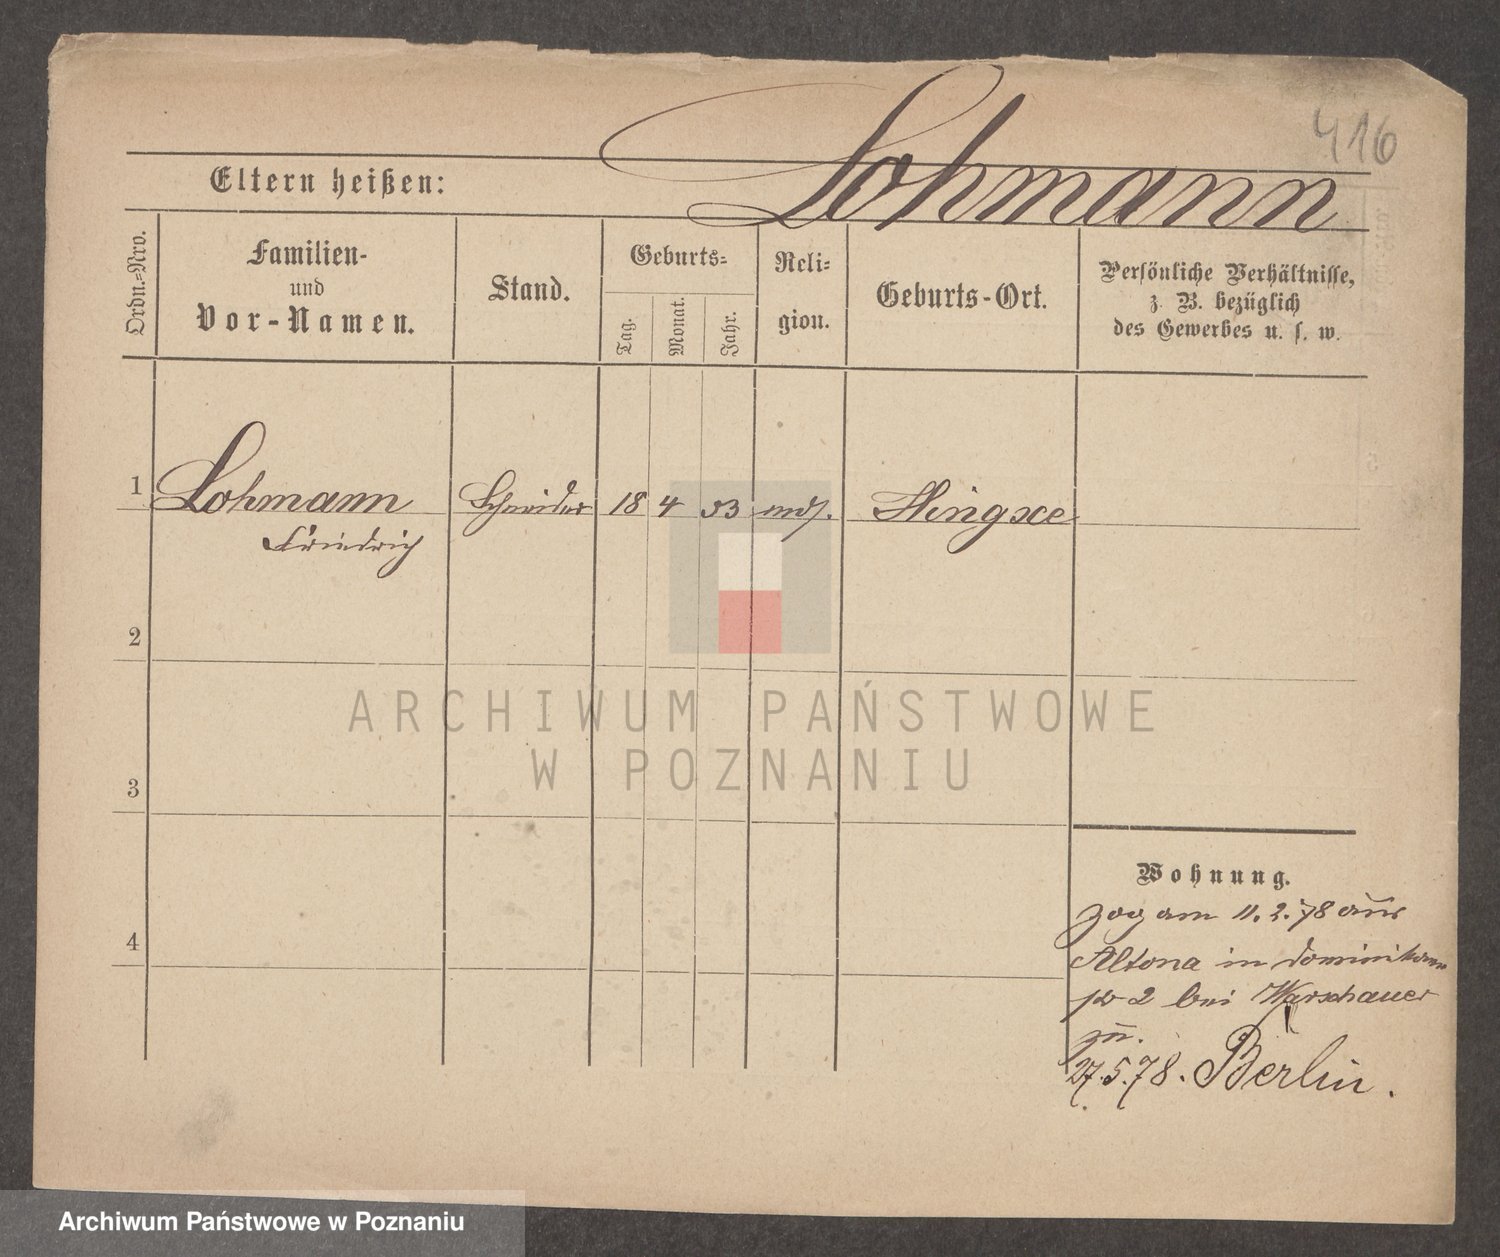 416
Lohmann
Eltern heißen:
Ordn.=Nro.
Familien-
und
Vor-Namen.
Stand.
Geburts=
Tag.
Monat.
Jahr.
Reli=
gion.
Geburts-Ort.
Persönliche Verhältnisse,
z. B. bezüglich
des Gewerbes u. s. w.
1 Lohmann Schneider 18 4 53
Friedrich
2
3
4
Wohnung.
zog am 11. 2. 78 aus
Altona in Dominikaner
2 bei Warschauer
zu.
27. 5. 78. Berlin.
ARCHIWUM PAŃSTWOWE
W POZNANIU
Archiwum Państwowe w Poznaniu